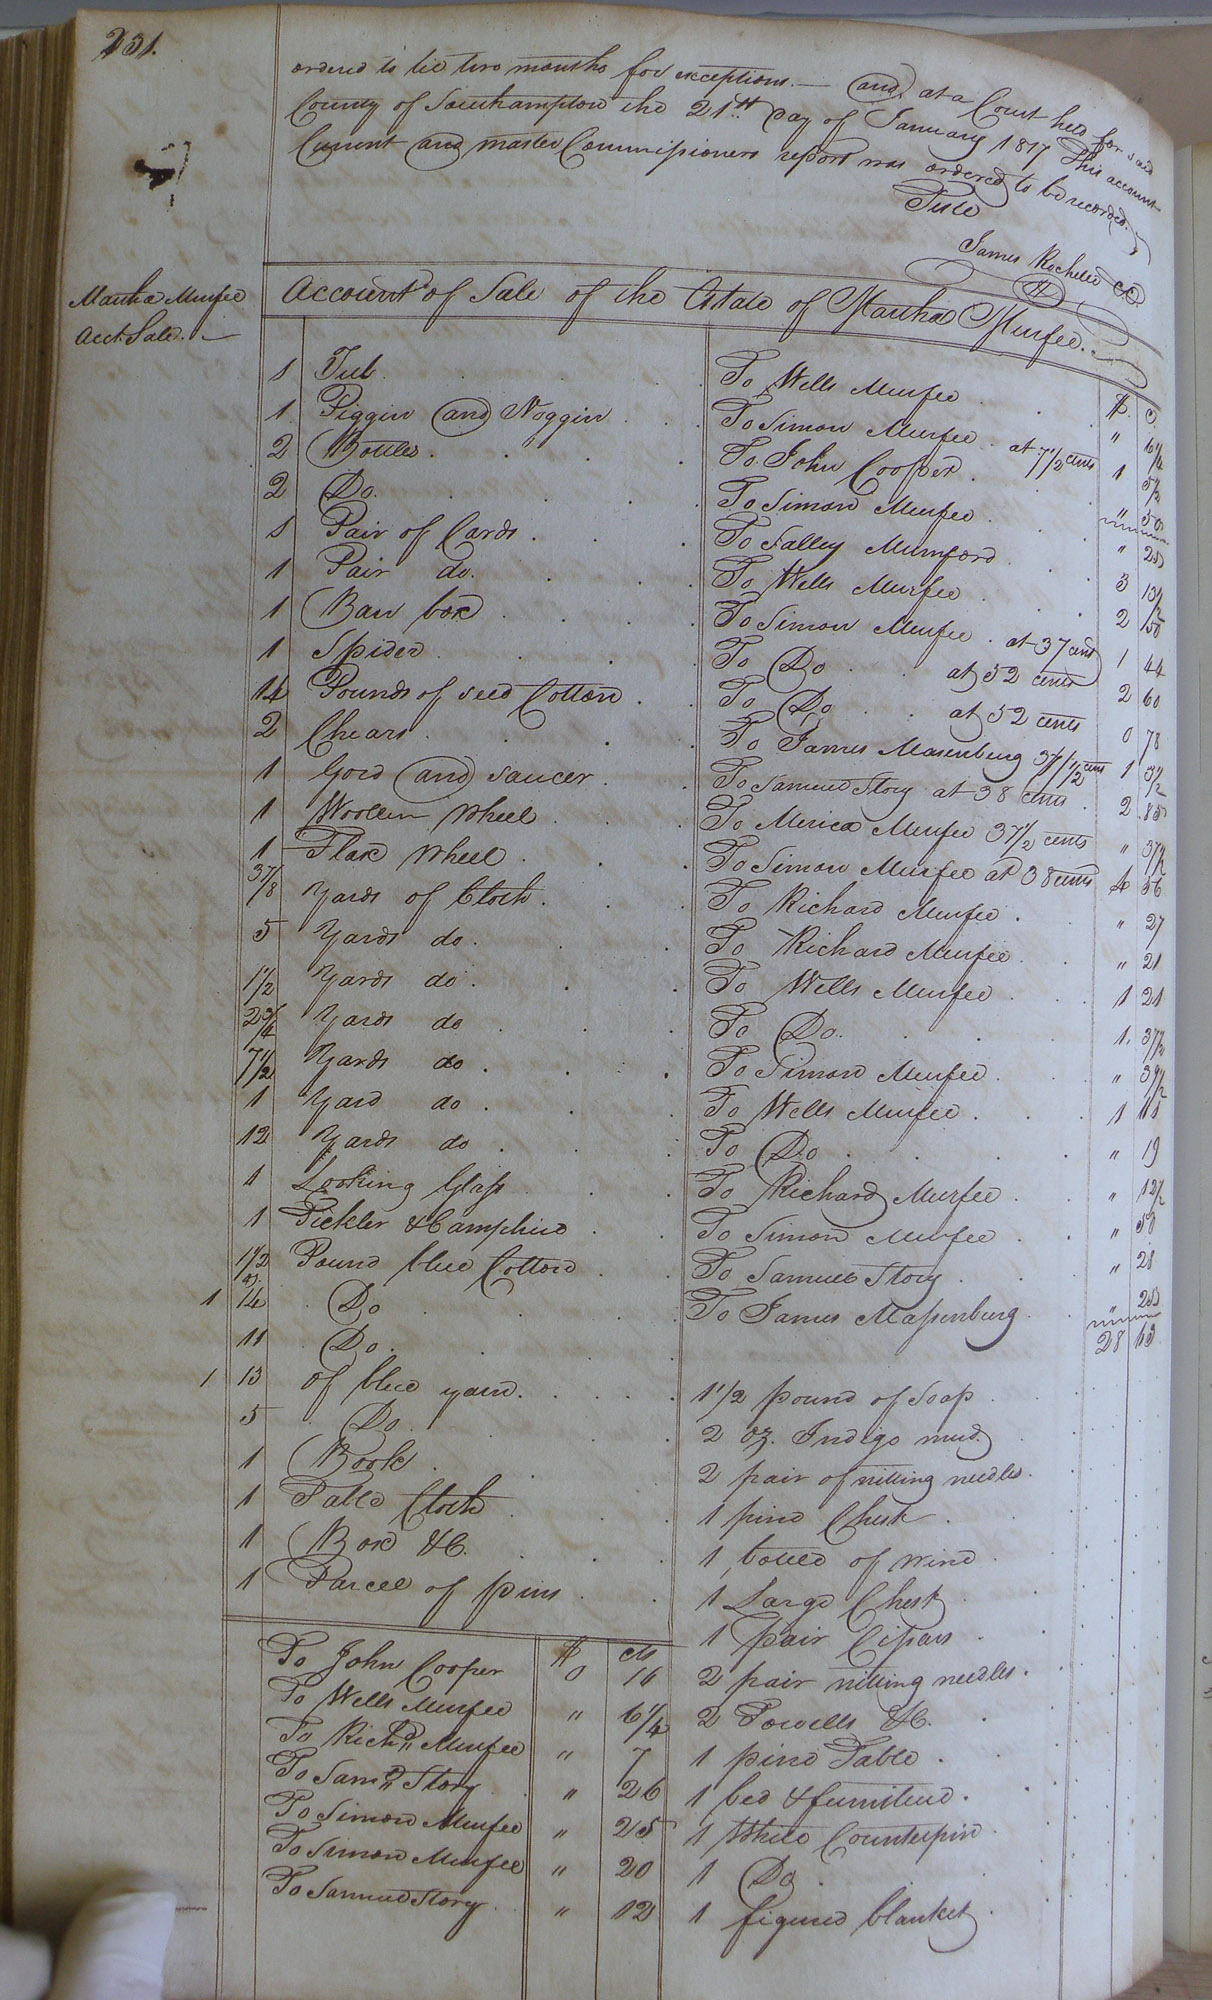 231.
ordered to lie two months for exceptions. — and at a Court held for said
County of Southampton the 21st Day of January 1817 This account
Current and master Commissioners report was ordered to be recorded.
Teste
James Rochelle CC.
Martha Murfee
Acct. Sale. —
Account of Sale of the Estate of Martha Murfee.
$ c
1 Tub . . . To Wells Murfee . " 6 1/4
1 Piggin and Noggin . . . To Simon Murfee . at 7 1/2 cents 1
2 Bottles . " . . To John Cooper . " 50
2 Do . . . To Simon Murfee . " 25
1 Pair of Cards . . . To Salley Mumford . 3
1 Pair do. . . . To Wells Murfee . 2 50
1 Ban box . . . To Simon Murfee . at 37 cents 1 44
1 Spider . . . To Do . at 52 cents 2 60
14 Pounds of seed Cotton . . To Do . at 52 cents 0 78
2 Chears . . . To James Masenburg 37 1/2 cents 1
1 Gord and saucer . . To Samuel Story at 38 cents . 2 85
1 Woollen Wheel . . To Merica Murfee 37 1/2 cents " 37 1/2
1 Flax Wheel . . To Simon Murfee at 38 cents 4 56
3 7/8 Yards of Cloth . . To Richard Murfee . " 27
5 Yards do . . . To Richard Murfee . " 21
1 1/2 Yards do . . . To Wells Murfee . 1 21
2 3/4 Yards do . . . To Do . . 1. 37 1/2
7 1/2 Yards do . . . To Simon Murfee . "
1 Yard do . . . To Wells Murfee . 1
12 Yards do . . . To Do . . " 19
1 Looking Glass . . To Richard Murfee . " 12 1/2
1 Pickler & Camphire . . To Simon Murfee . " 58
1 1/2 Pound blue Cotton . . To Samuel Story . " 28
1 14 oz. Do . . . To James Massenburg . " 25
11 Do . . . 28
1 13 of blue yarn . . . 1 1/2 pound of Soap
5 Do . . . 2 oz. Indigo mud
1 Book . . . 2 pair of nitting needles .
1 Table Cloth . . . 1 pine Chest .
1 Box &C. . . . 1 bottle of wine .
1 Parcel of pins . . . 1 Large Chest .
$ cts 1 pair Cissars .
To John Cooper 0 16 2 pair nitting needles .
To Wells Murfee " 6 1/4 2 Towells &C. .
To Richd Murfee " 7 1 pine Table .
To Saml Story " 26 1 bed & furniture .
To Simon Murfee " 25 1 White Counterpin .
To Simon Murfee " 20 1 Do .
To Samuel Story . " 12 1 figured blanket .